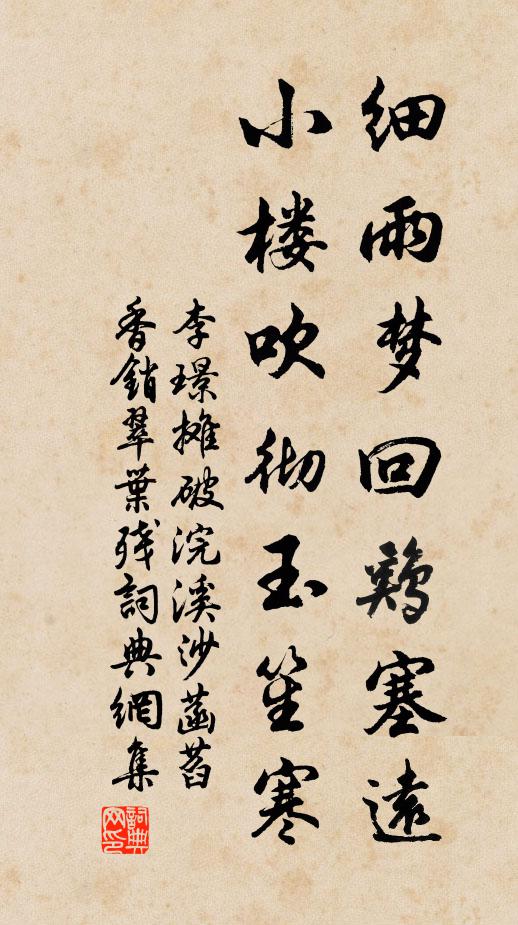 细雨梦回鷄塞遠
小楼吹彻玉笙寒
李璟摊破浣溪沙菡萏
香銷翠葉残詞典網集
詞典网印